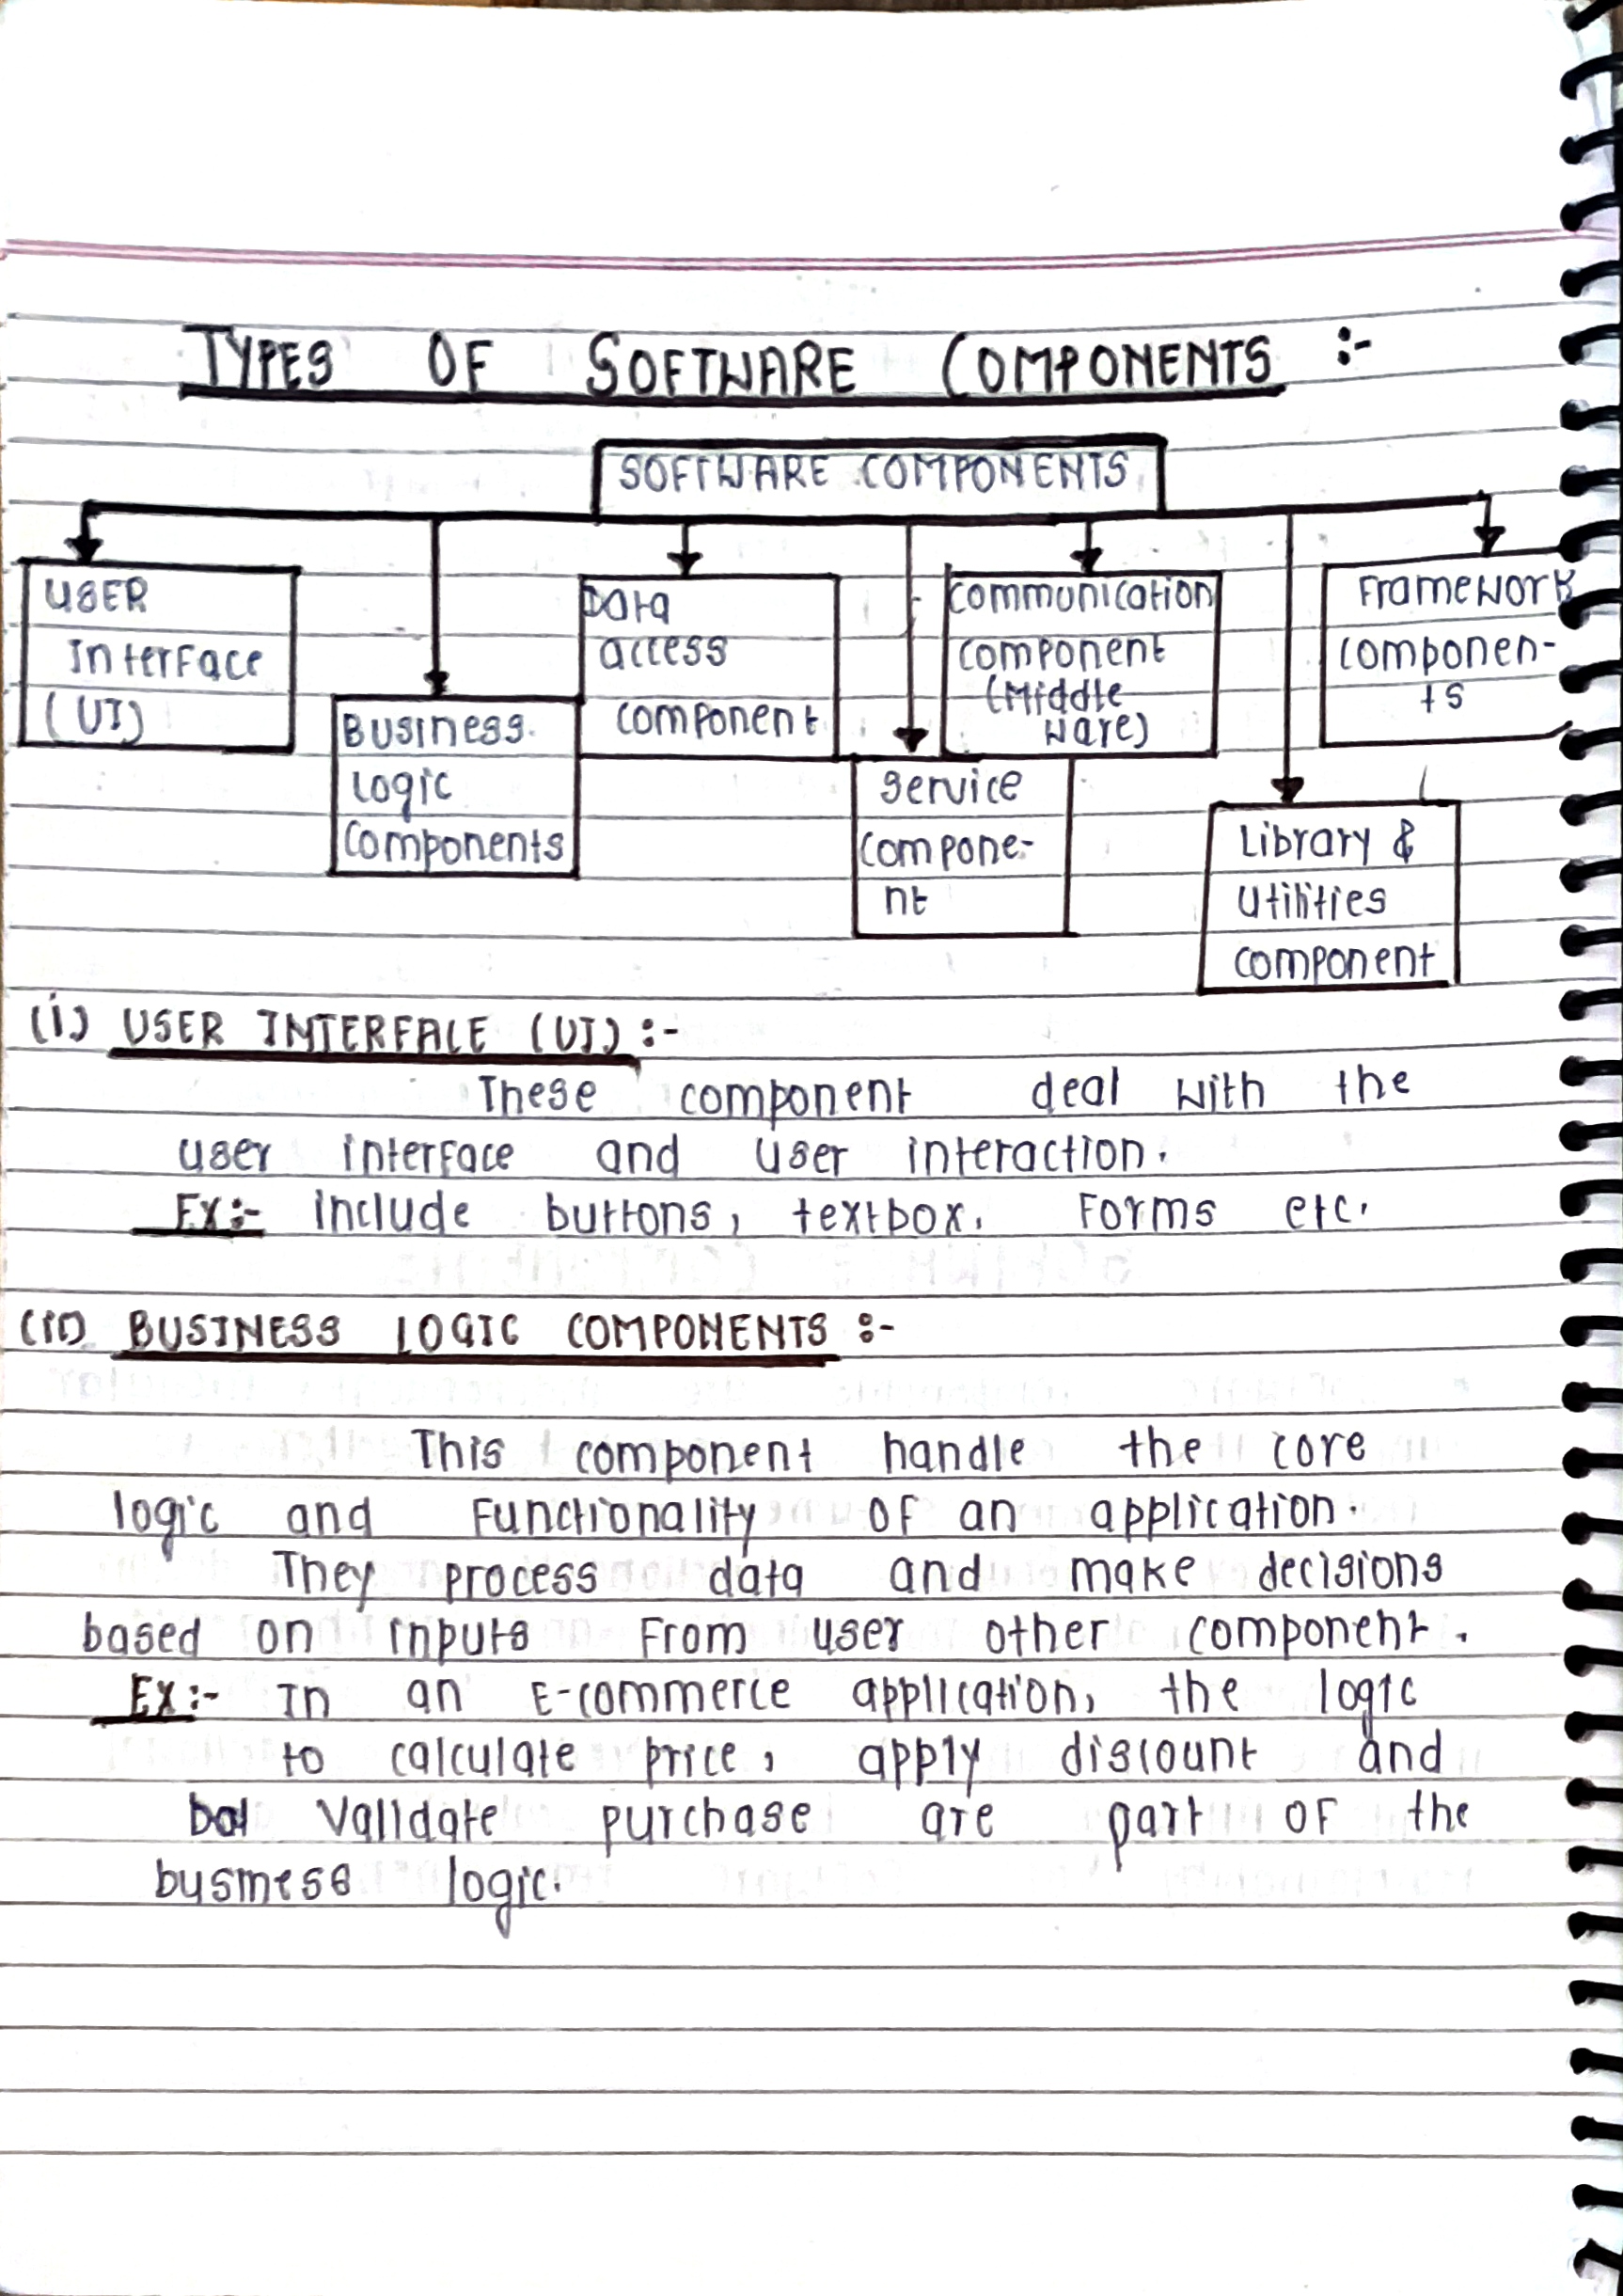 TYPES OF SOFTWARE COMPONENTS :-
SOFTWARE COMPONENTS
USER
Interface
(UI)
Business
Logic
Components
Data
access
component
Service
Compone-
nt
Communication
component
(Middle
Ware)
Library &
Utilities
component
Framework
componen-
ts
(i) USER INTERFACE (UI) :-
These component deal with the
user interface and user interaction.
Ex:- include buttons, textbox, Forms etc.
(ii) BUSINESS LOGIC COMPONENTS :-
This component handle the core
logic and Functionality of an application.
They process data and make decisions
based on inputs From user other component.
Ex:- In an E-commerce application, the logic
to calculate price, apply discount and
Validate purchase are part of the
business logic.